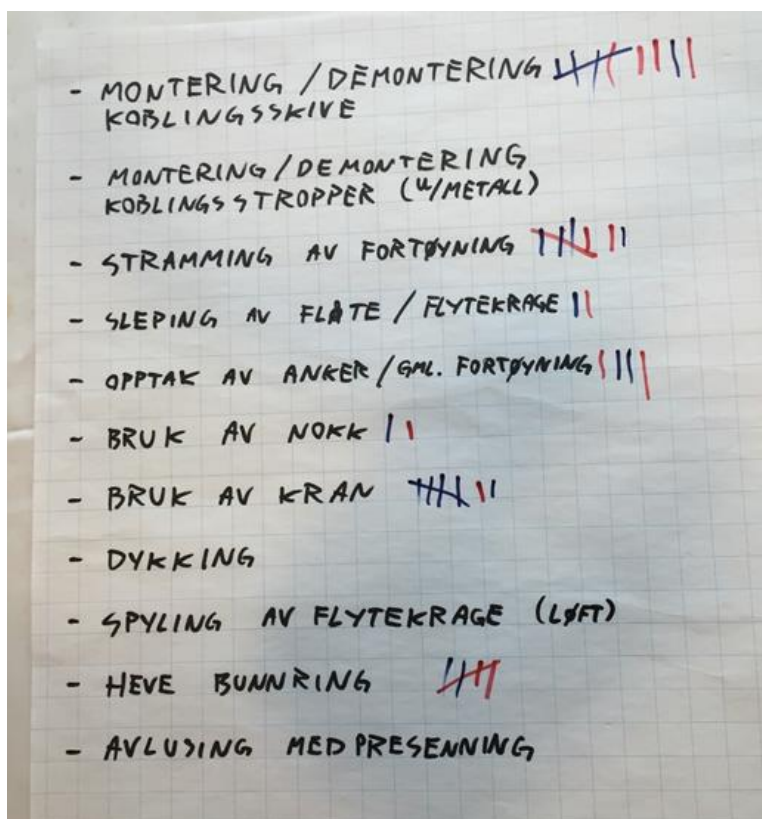 - MONTERING / DEMONTERING
KOBLINGSSKIVE
- MONTERING/DEMONTERING
KOBLINGSSTROPPER (U/METALL)
- STRAMMING AV FORTØYNING
- SLEPING AV FLÅTE / FLYTEKRAGE
- OPPTAK AV ANKER/GML. FORTØYNING
- BRUK AV NOKK
- BRUK AV KRAN
- DYKKING
- SPYLING AV FLYTEKRAGE (LØFT)
- HEVE BUNNRING
- AVLUSING MED PRESENNING